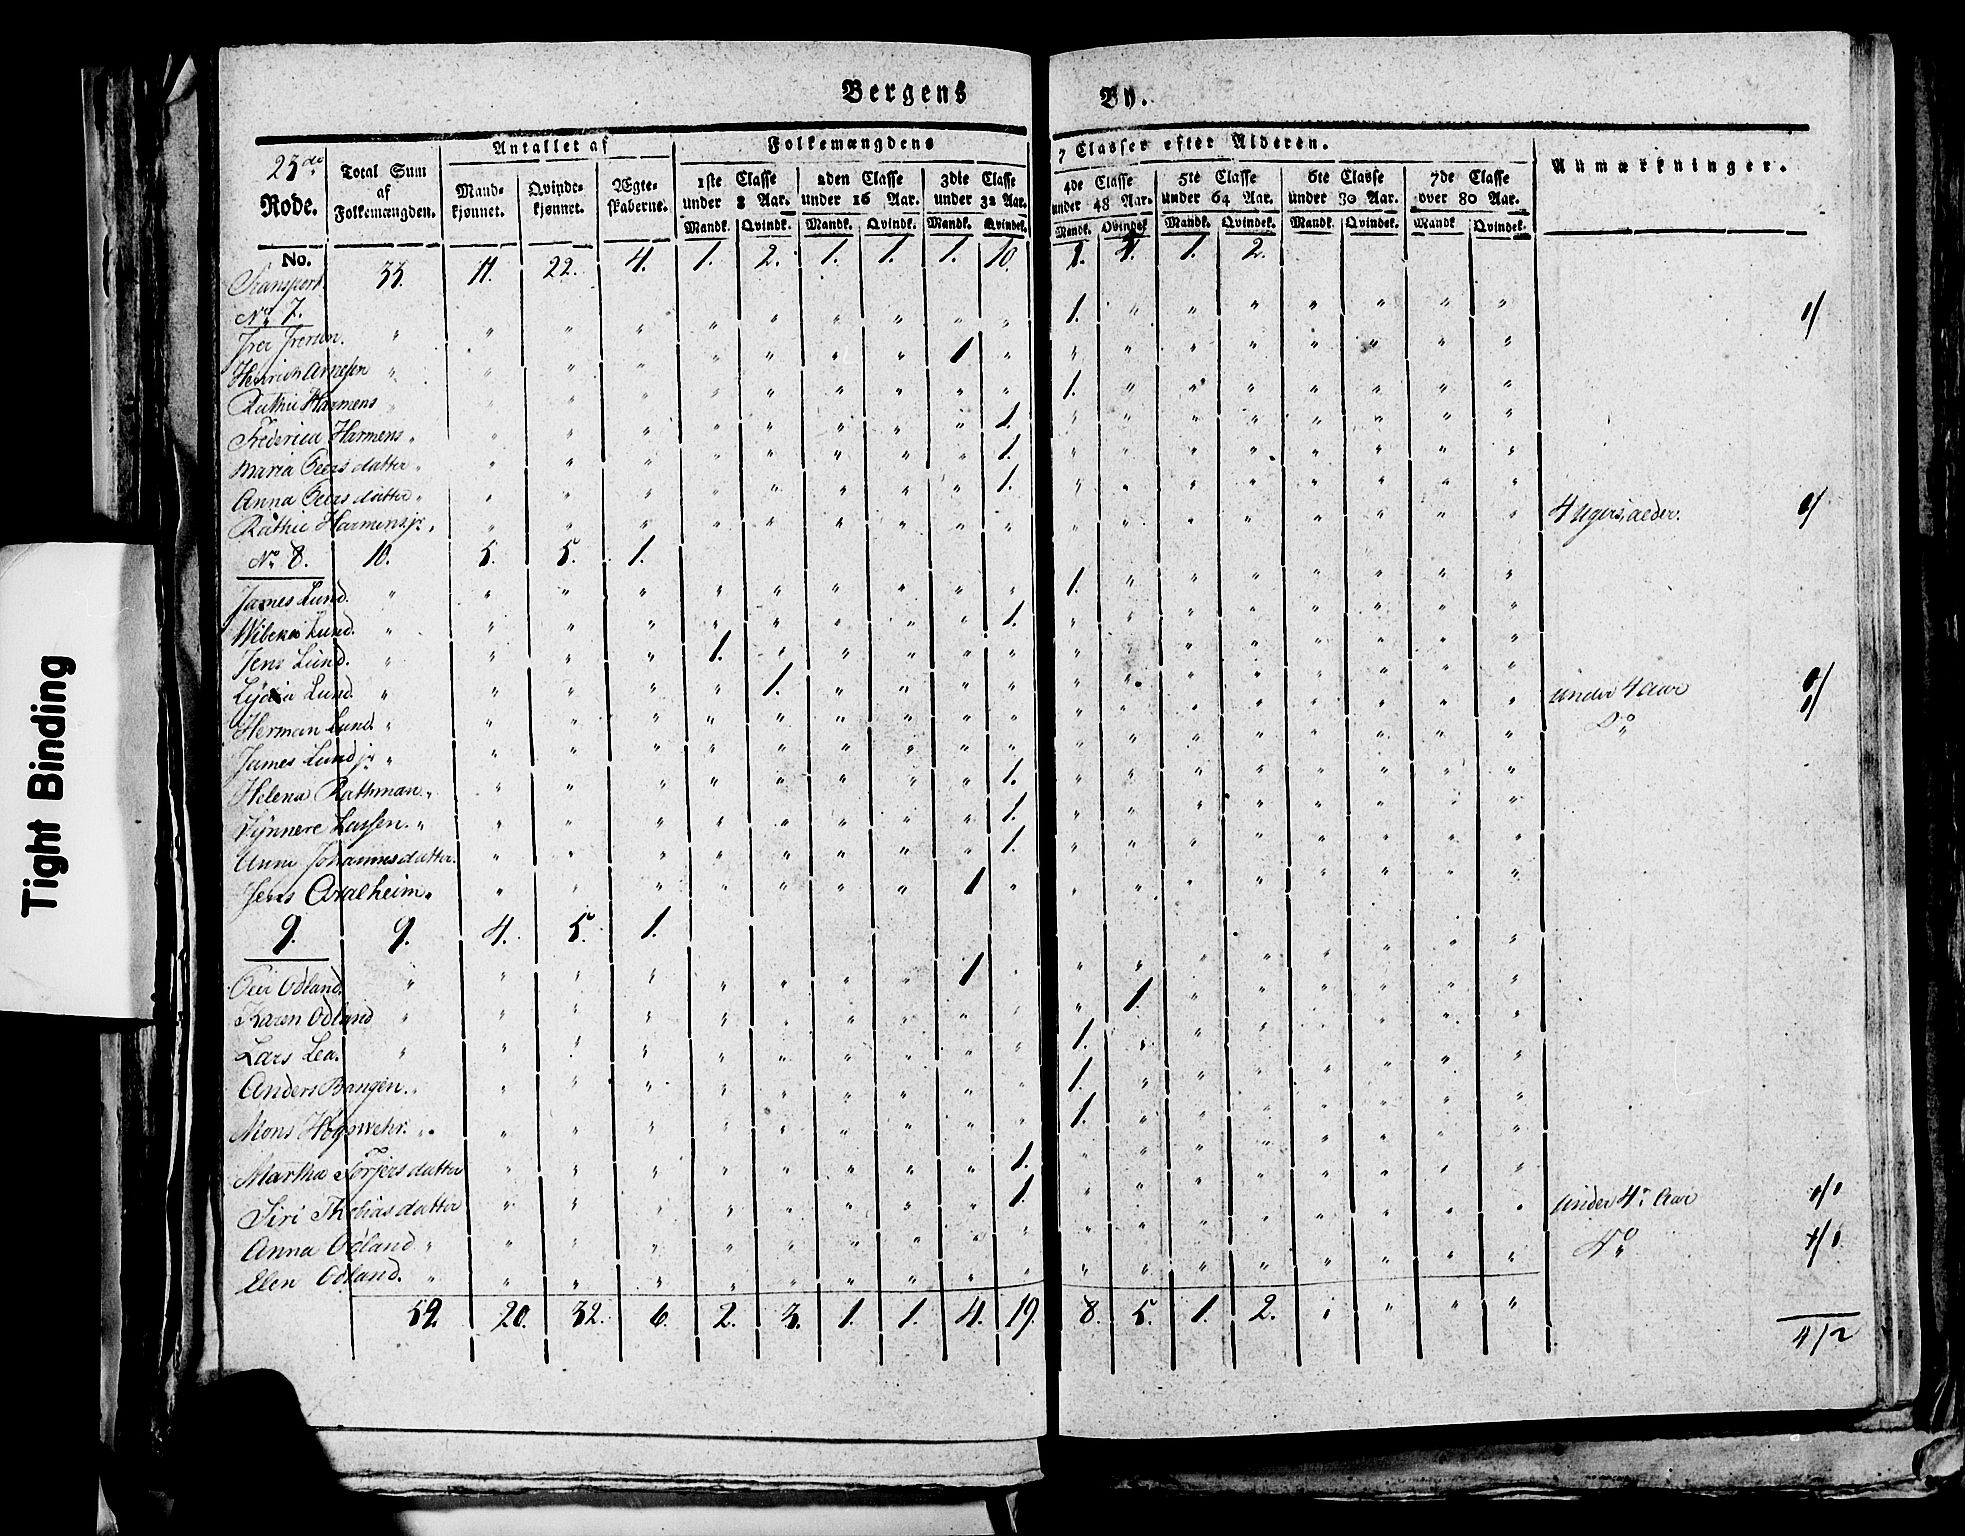 Bergens By.
23de Rode. Total Sum af Folkemængden. Antallet af Mandkjønnet. Qvindekjønnet. Ægteskaberne. Folkemængdens 7 Classer efter Alderen. Anmærkninger.
1ste Classe under 8 Aar. 2den Classe under 16 Aar. 3die Classe under 32 Aar. 4de Classe under 48 Aar. 5te Classe under 64 Aar. 6te Classe under 80 Aar. 7de Classe over 80 Aar.
Mandk. Qvindk. Mandk. Qvindk. Mandk. Qvindek. Mandk. Qvindek. Mandk. Qvindek. Mandk. Qvindek. Mandk Qvindek.
No.
Transport. 33. 11. 22. 4. 1. 2. 1. 1. 1. 10. 1. 4. 1. 2.
No 7.
Iver Iversen. " " " " " " " " " " 1. " " " " " " "
Henrich Arnesen " " " " " " " " 1 " " " " " " " " "
Ruthie Harmens " " " " " " " " " " 1. " " " " " " "
Frederica Harmens " " " " " " " " " 1. " " " " " " " "
Maria Peersdatter " " " " " " " " " 1. " " " " " " " "
Anna Peersdatter " " " " " " " " " 1. " " " " " " " "
Ruthie Harmens jr. " " " " " " " " " " " " " " " " " " 4 Ugers, alder.
No 8. 10. 5. 5. 1.
James Lund. " " " " " " " " " " 1. " " " " " " "
Wibeke Lund. " " " " " " " " " 1. " " " " " " " "
Jens Lund. " " " " 1. " " " " " " " " " " " " "
Lydia Lund " " " " " 1. " " " " " " " " " " " " under 4 Aar
Herman Lund. " " " " " " " " " " " " " " " " " " Do
James Lund jr " " " " " " " " " " " " " " " " " "
Helena Rathman " " " " " " " " " 1. " " " " " " " "
Lassen. " " " " " " " " " 1. " " " " " " " "
Anne Johannesdatter. " " " " " " " " " 1. " " " " " " " "
Jens " " " " " " " " 1 " " " " " " " " "
9. 9. 4. 5. 1.
Peer Odland. " " " " " " " " 1 " " " " " " " " "
Karen Odland " " " " " " " " " " " 1. " " " " " "
Lars Lea. " " " " " " " " " " 1. " " " " " " "
Anders Bangen. " " " " " " " " " " 1. " " " " " " "
Mons " " " " " " " " " " 1. " " " " " " "
Martha Torjersdatter " " " " " " " " " 1. " " " " " " " "
Siri Thobiasdatter " " " " " " " " " 1. " " " " " " " " under 4. Aar
Anna Odland " " " " " " " " " " " " " " " " " " Do
Elen Odland. " " " " " " " " " " " " " " " " " "
52. 20. 32. 6. 2. 3. 1. 1. 4. 19. 8. 5. 1. 2. " " " " 4/2
Tight Binding